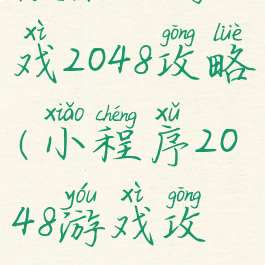 xì gōng lüè
戏2048攻略
xiǎo chéng xǔ
(小程序20
yóu xì gōng
48游戏攻